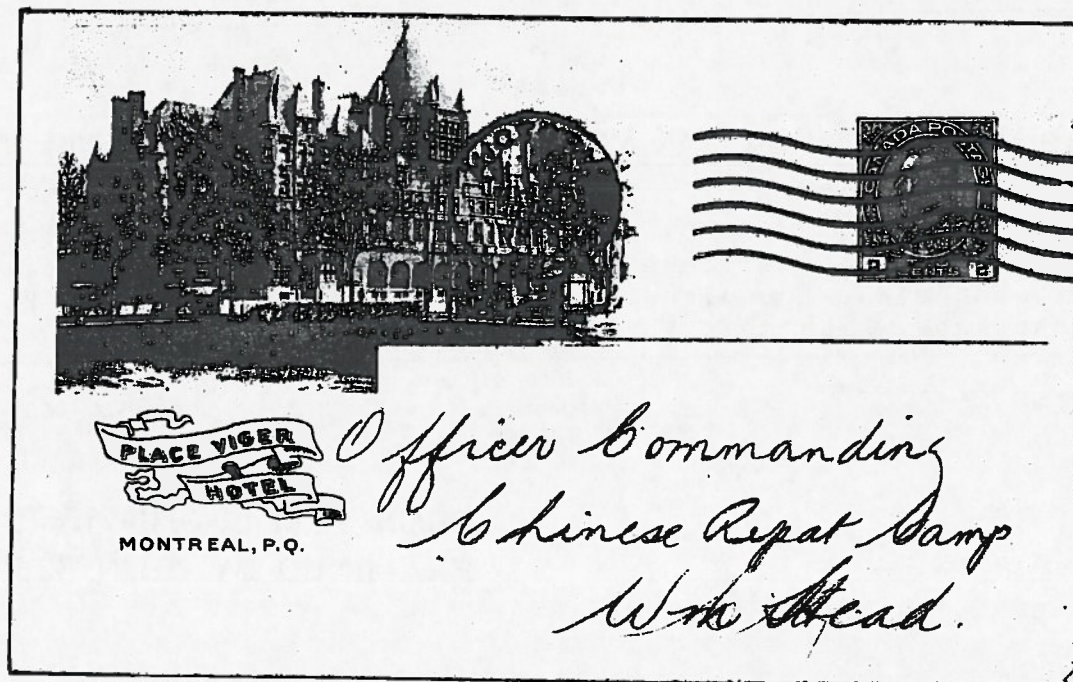 ADA PO
CENTS
PLACE VIGER
HOTEL
MONTREAL, P.Q.
Officer Commanding
Chinese Repat Camp
Wm Head.